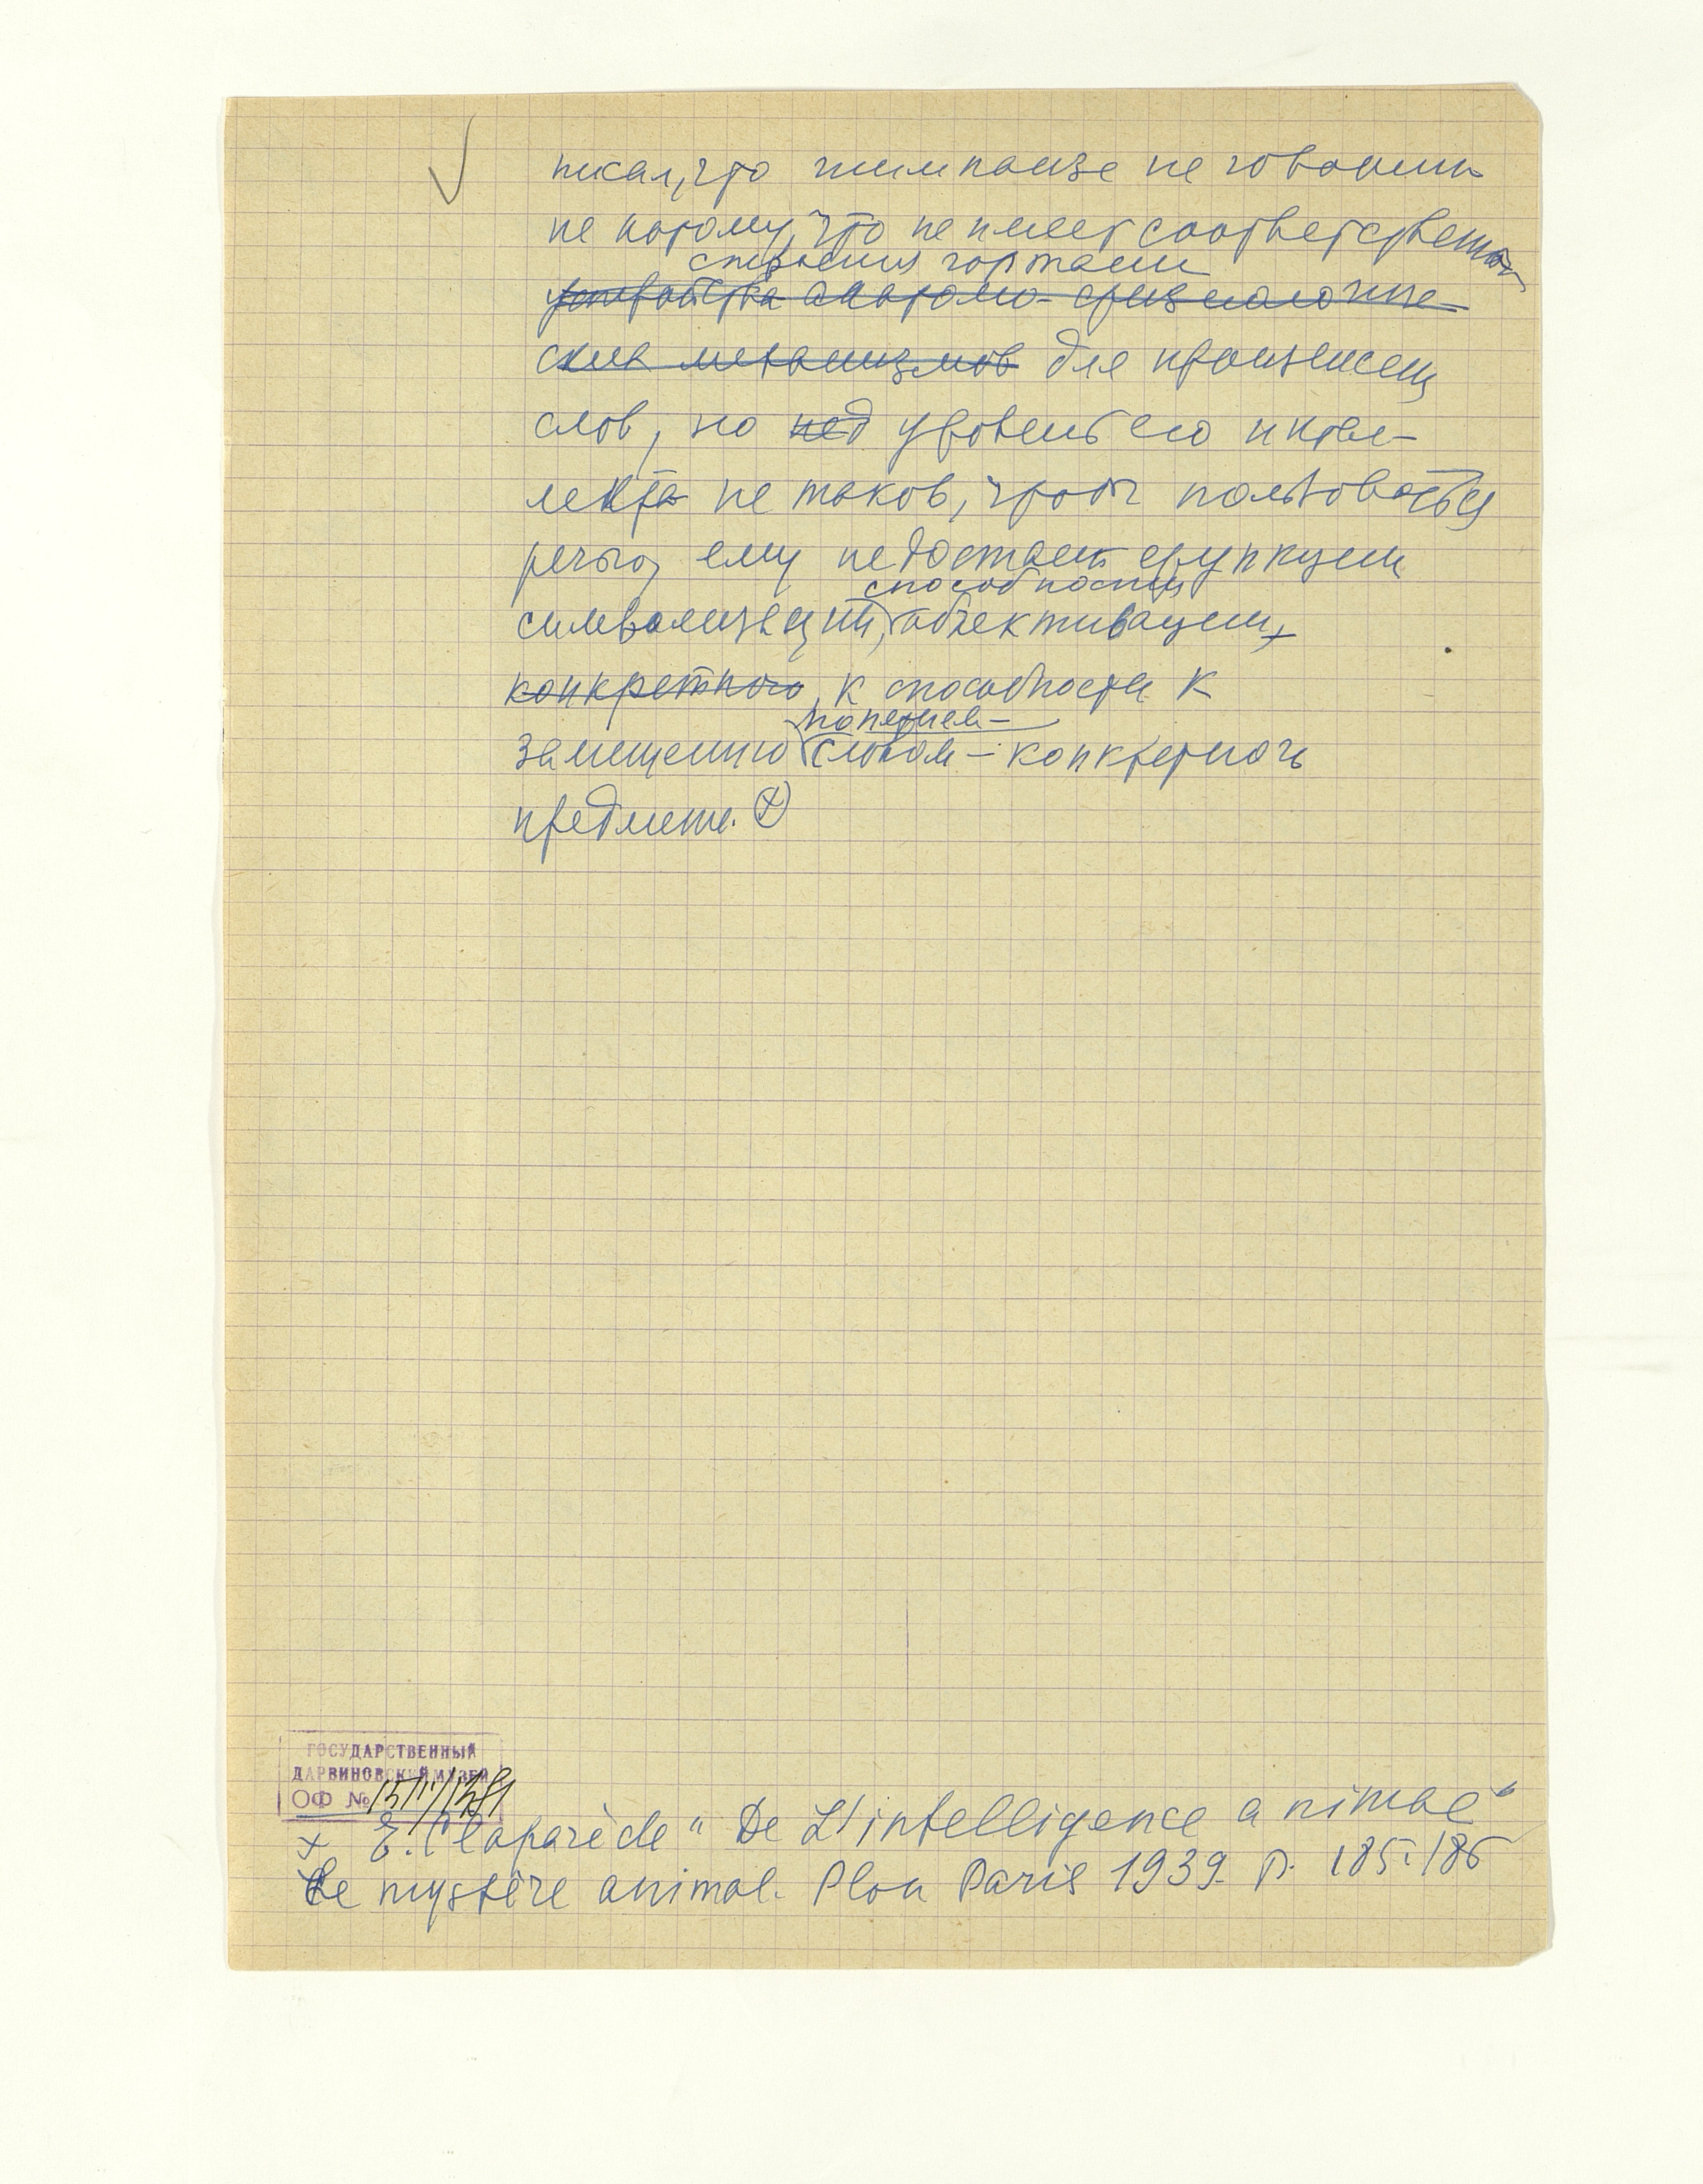 писал, что шимпанзе не говорит
не потому, что не имеет соответственного
строения гортани
устройства анатомо-физиологиче-
ских механизмов для произнесения
слов, но уровень его интел-
лекта не таков, чтобы пользоваться
речью, ему недостает функции
способности
символизации, объективации,
конкретного, к способности к
понятием-
замещению словом - конкретного
предмета. (x)
ГОСУДАРСТВЕННЫЙ
ДАРВИНОВСКИЙ МУЗЕЙ
ОФ №
x E. Claparède "De L'intelligence animale"
Le mystère animal. Plon Paris 1939. p. 185-186